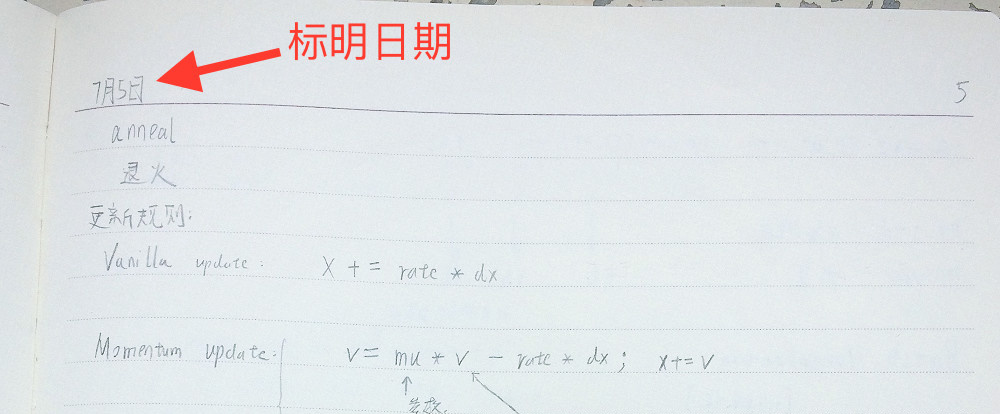 标明日期
7月5日
5
anneal
退火
更新规则:
Vanilla update: X += rate * dx
Momentum update: V = mu * v - rate * dx; X += V
参数.